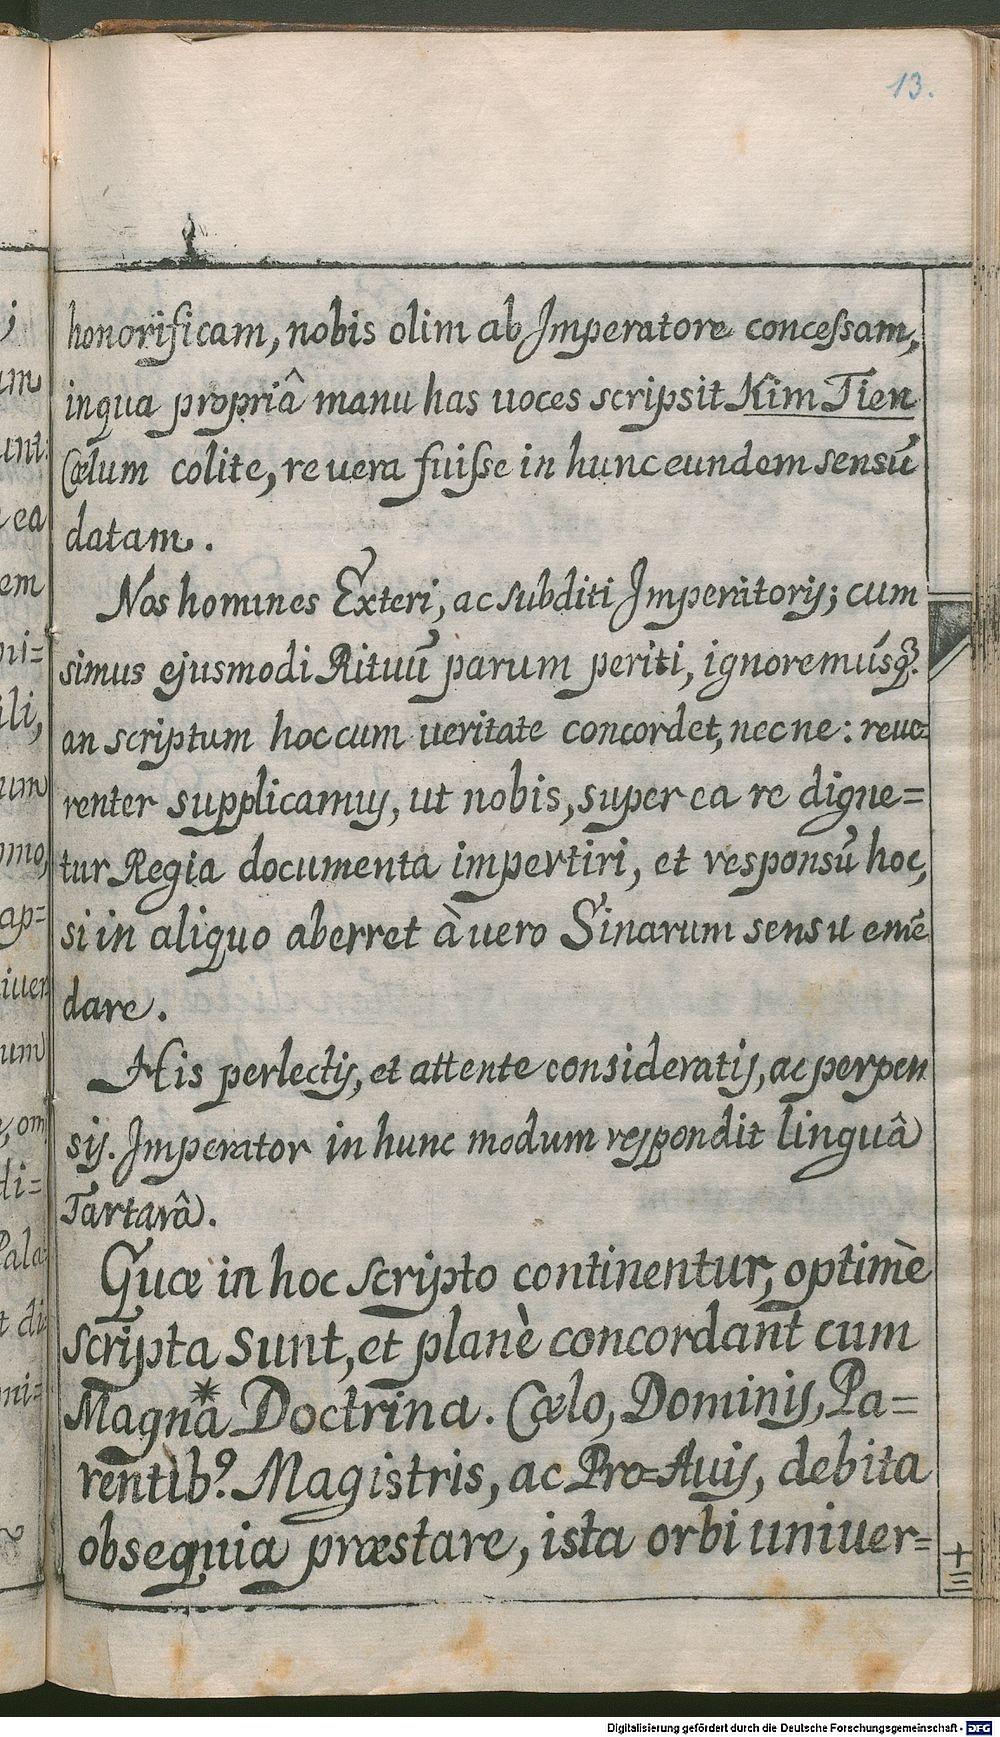 13.
honorificam, nobis olim ab Imperatore conceſsam,
inqua propriâ manu has uoces scripsit Kim Tien
Cœlum colite, re uera fuiſse in hunc eundem sensū
datam.
Nos homines Exteri, ac subditi Imperatorij; cum
simus ejusmodi Rituū parum periti, ignoremúsq̃.
an scriptum hoc cum ueritate concordet, nec ne: reue=
renter supplicamus, ut nobis, super ea re digne=
tur Regia documenta impertiri, et responsū hoc,
si in aliquo aberret à uero Sinarum sensu emē
dare.
His perlectis, et attente consideratis, ac perpen
sis. Imperator in hunc modum respondit linguâ
Tartarâ.
Quæ in hoc scripto continentur, optimè
scripta sunt, et planè concordant cum
Magna* Doctrina. Cœlo, Dominis, Pa=
rentib9. Magistris, ac Pro=Auis, debita
obsequia præstare, ista orbi uniuer=
十三
Digitalisierung gefördert durch die Deutsche Forschungsgemeinschaft - DFG